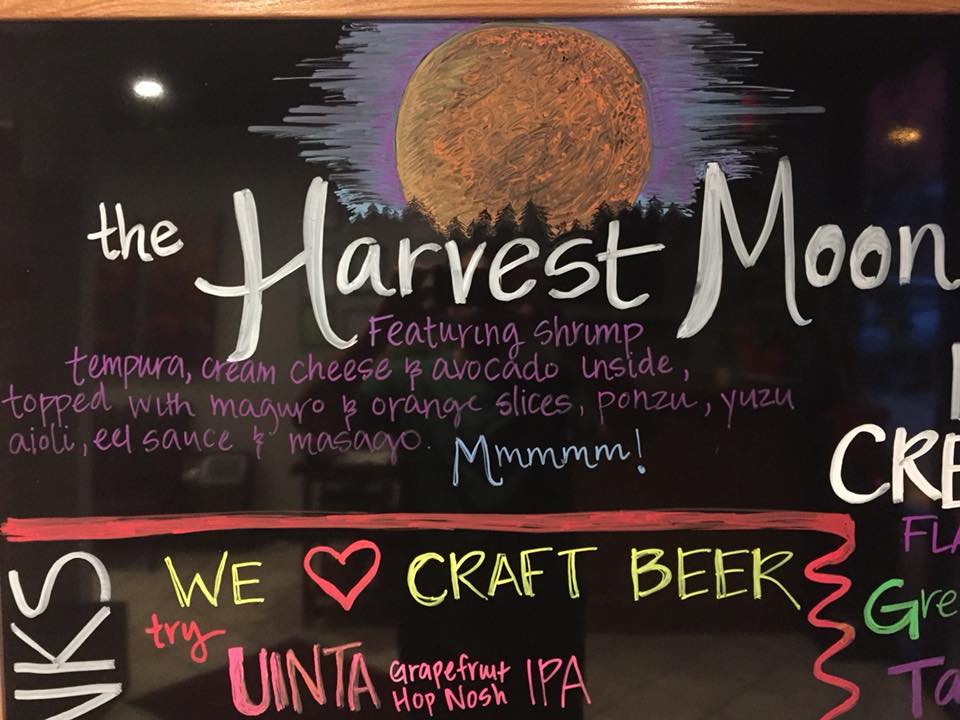 the Harvest Moon
Featuring shrimp
tempura, cream cheese & avocado inside,
topped with maguro & orange slices, ponzu, yuzu
aioli, eel sauce & masago.
Mmmmmm!
CRE
FLA
Gre
Ta
NKS
WE ♥ CRAFT BEER
try
UINTA Grapefruit Hop Nosh IPA